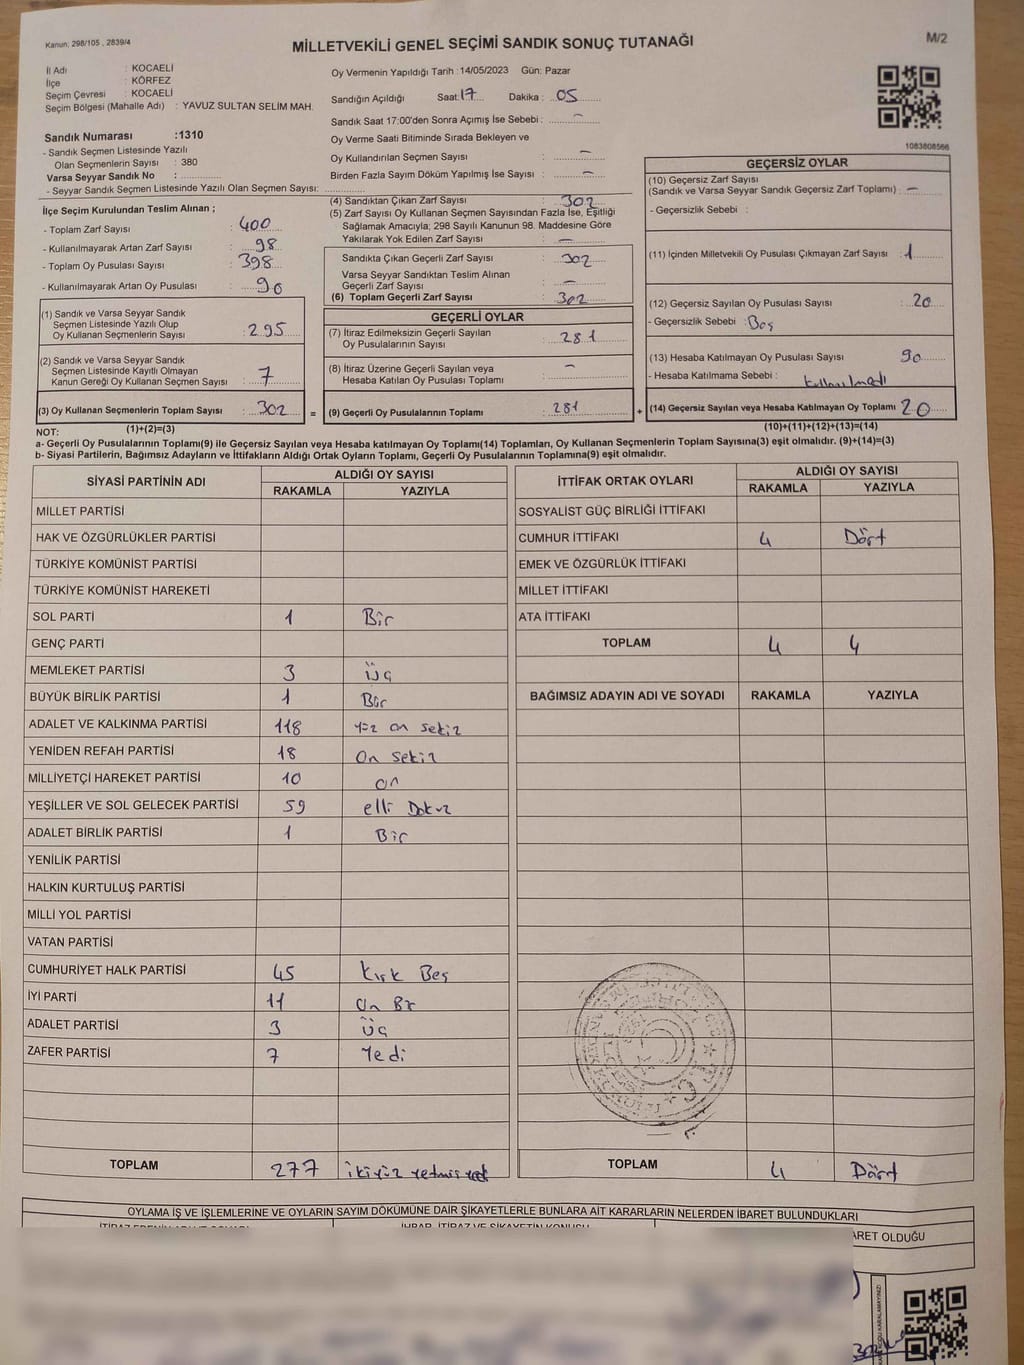 Kanun: 298/105 , 2839/4
MİLLETVEKİLİ GENEL SEÇİMİ SANDIK SONUÇ TUTANAĞI
M/2
İl Adı : KOCAELİ
İlçe : KÖRFEZ
Seçim Çevresi : KOCAELİ
Seçim Bölgesi (Mahalle Adı) : YAVUZ SULTAN SELİM MAH.
Sandık Numarası :1310
- Sandık Seçmen Listesinde Yazılı
Olan Seçmenlerin Sayısı : 380
Varsa Seyyar Sandık No :
- Seyyar Sandık Seçmen Listesinde Yazılı Olan Seçmen Sayısı:
Oy Vermenin Yapıldığı Tarih :14/05/2023 Gün: Pazar
Sandığın Açıldığı Saat:17 Dakika : 05
Sandık Saat 17:00'den Sonra Açımış İse Sebebi : -
Oy Verme Saati Bitiminde Sırada Bekleyen ve
Oy Kullandırılan Seçmen Sayısı : -
Birden Fazla Sayım Döküm Yapılmış İse Sayısı : -
1083808566
İlçe Seçim Kurulundan Teslim Alınan ;
- Toplam Zarf Sayısı : 400
- Kullanılmayarak Artan Zarf Sayısı : 98
- Toplam Oy Pusulası Sayısı : 398
- Kullanılmayarak Artan Oy Pusulası : 90
(1) Sandık ve Varsa Seyyar Sandık
Seçmen Listesinde Yazılı Olup
Oy Kullanan Seçmenlerin Sayısı : 295
(2) Sandık ve Varsa Seyyar Sandık
Seçmen Listesinde Kayıtlı Olmayan
Kanun Gereği Oy Kullanan Seçmen Sayısı : 7
(3) Oy Kullanan Seçmenlerin Toplam Sayısı : 302
(4) Sandıktan Çıkan Zarf Sayısı : 302
(5) Zarf Sayısı Oy Kullanan Seçmen Sayısından Fazla İse, Eşitliği
Sağlamak Amacıyla; 298 Sayılı Kanunun 98. Maddesine Göre
Yakılarak Yok Edilen Zarf Sayısı : -
Sandıkta Çıkan Geçerli Zarf Sayısı : 302
Varsa Seyyar Sandıktan Teslim Alınan
Geçerli Zarf Sayısı : -
(6) Toplam Geçerli Zarf Sayısı : 302
GEÇERLİ OYLAR
(7) İtiraz Edilmeksizin Geçerli Sayılan
Oy Pusulalarının Sayısı : 281
(8) İtiraz Üzerine Geçerli Sayılan veya
Hesaba Katılan Oy Pusulaları Toplamı : -
= (9) Geçerli Oy Pusulalarının Toplamı : 281
GEÇERSİZ OYLAR
(10) Geçersiz Zarf Sayısı
(Sandık ve Varsa Seyyar Sandık Geçersiz Zarf Toplamı) : -
- Geçersizlik Sebebi :
(11) İçinden Milletvekili Oy Pusulası Çıkmayan Zarf Sayısı : 1
(12) Geçersiz Sayılan Oy Pusulası Sayısı : 20
- Geçersizlik Sebebi : Boş
(13) Hesaba Katılmayan Oy Pusulası Sayısı 90
- Hesaba Katılmama Sebebi : kullanılmadı
+ (14) Geçersiz Sayılan veya Hesaba Katılmayan Oy Toplamı 20
NOT: (1)+(2)=(3)
(10)+(11)+(12)+(13)=(14)
a- Geçerli Oy Pusulalarının Toplamı(9) ile Geçersiz Sayılan veya Hesaba katılmayan Oy Toplamı(14) Toplamları, Oy Kullanan Seçmenlerin Toplam Sayısına(3) eşit olmalıdır. (9)+(14)=(3)
b- Siyasi Partilerin, Bağımsız Adayların ve İttifakların Aldığı Ortak Oyların Toplamı, Geçerli Oy Pusulalarının Toplamına(9) eşit olmalıdır.
SİYASİ PARTİNİN ADI ALDIĞI OY SAYISI
RAKAMLA YAZIYLA
MİLLET PARTİSİ
HAK VE ÖZGÜRLÜKLER PARTİSİ
TÜRKİYE KOMÜNİST PARTİSİ
TÜRKİYE KOMÜNİST HAREKETİ
SOL PARTİ 1 Bir
GENÇ PARTİ
MEMLEKET PARTİSİ 3 üç
BÜYÜK BİRLİK PARTİSİ 1 Bir
ADALET VE KALKINMA PARTİSİ 118 yüz on sekiz
YENİDEN REFAH PARTİSİ 18 On sekiz
MİLLİYETÇİ HAREKET PARTİSİ 10 on
YEŞİLLER VE SOL GELECEK PARTİSİ 59 elli Dokuz
ADALET BİRLİK PARTİSİ 1 Bir
YENİLİK PARTİSİ
HALKIN KURTULUŞ PARTİSİ
MİLLİ YOL PARTİSİ
VATAN PARTİSİ
CUMHURİYET HALK PARTİSİ 45 Kırk Beş
İYİ PARTİ 11 On Bir
ADALET PARTİSİ 3 üç
ZAFER PARTİSİ 7 Yedi
TOPLAM 277 ikiyüz yetmiş yedi
İTTİFAK ORTAK OYLARI ALDIĞI OY SAYISI
RAKAMLA YAZIYLA
SOSYALİST GÜÇ BİRLİĞİ İTTİFAKI
CUMHUR İTTİFAKI 4 Dört
EMEK VE ÖZGÜRLÜK İTTİFAKI
MİLLET İTTİFAKI
ATA İTTİFAKI
TOPLAM 4 4
BAĞIMSIZ ADAYIN ADI VE SOYADI RAKAMLA YAZIYLA
TOPLAM 4 Dört
OYLAMA İŞ VE İŞLEMLERİNE VE OYLARIN SAYIM DÖKÜMÜNE DAİR ŞİKAYETLERLE BUNLARA AİT KARARLARIN NELERDEN İBARET BULUNDUKLARI
İHBAR, İTİRAZ VE ŞİKAYETİN KONUSU
OLDUĞU